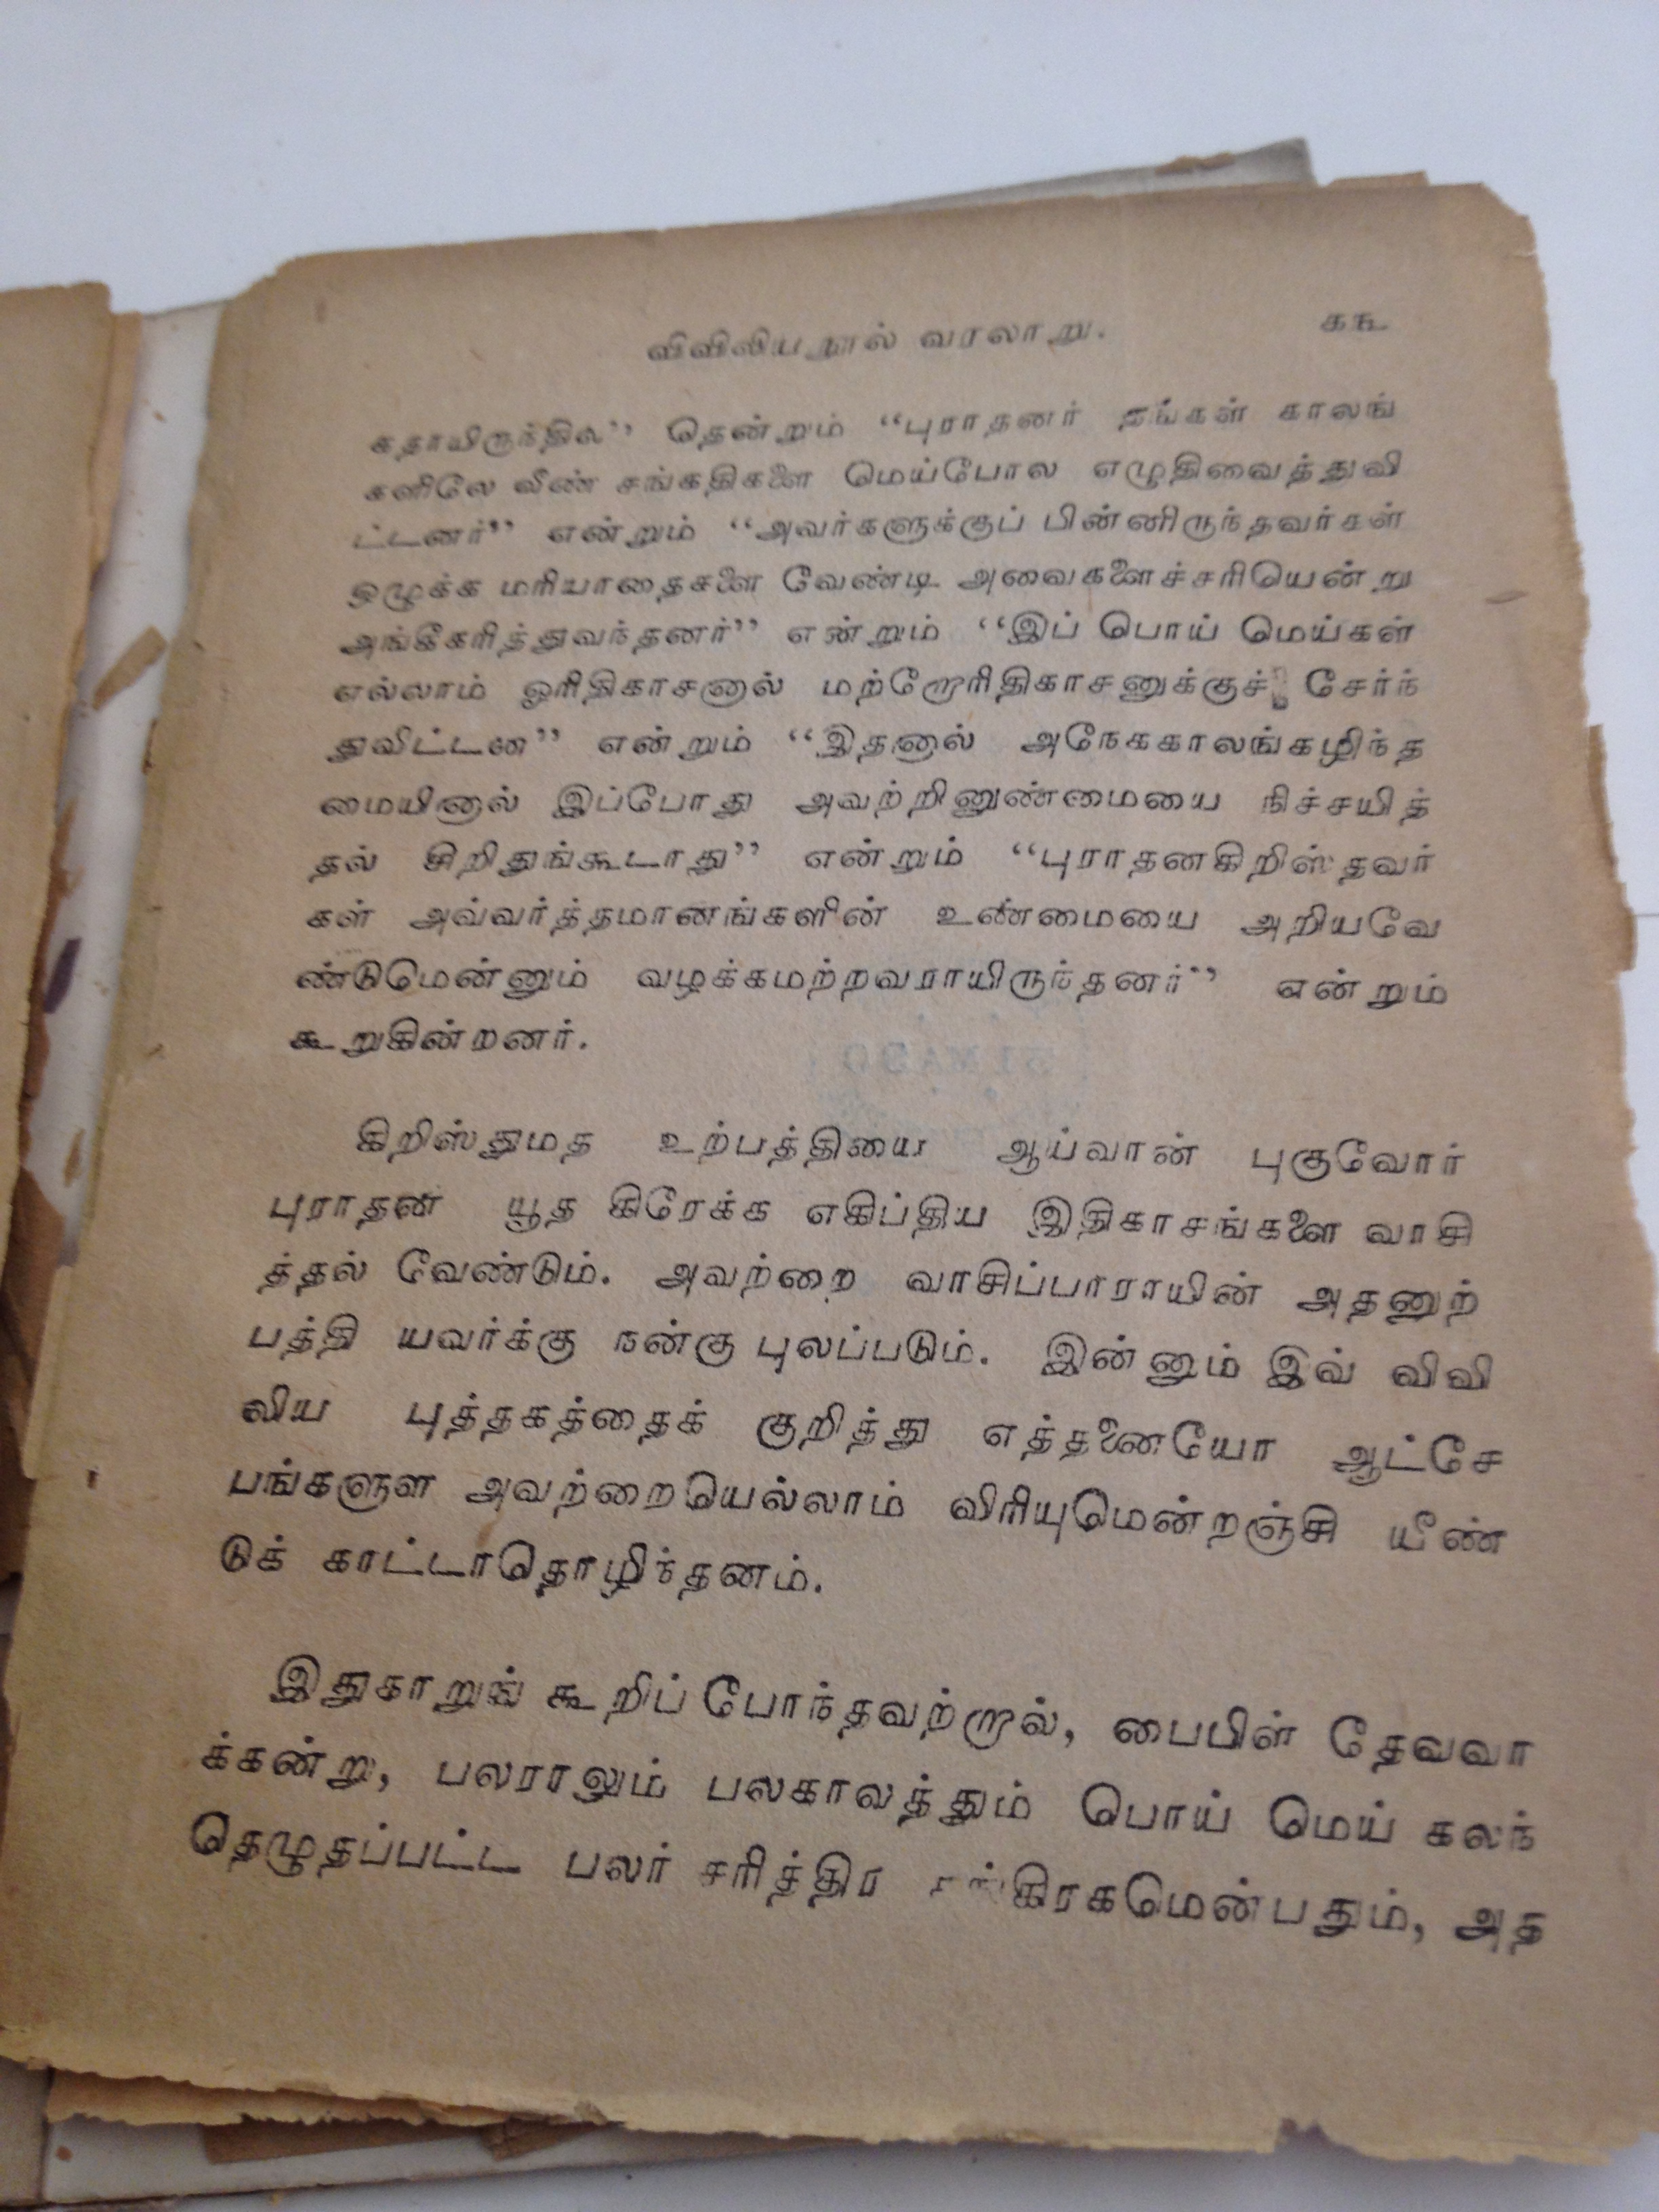 விவிலியநூல் வரலாறு. கக௩
கதாயிருந்தில" தென்றும் "புராதனர் தங்கள் காலங்
களிலே வீண் சங்கதிகளை மெய்போல எழுதிவைத்துவி
ட்டனர்" என்றும் "அவர்களுக்குப் பின்னிருந்தவர்கள்
ஒழுக்க மரியாதைகளை வேண்டி அவைகளைச்சரியென்று
அங்கீகரித்துவந்தனர்" என்றும் "இப் பொய் மெய்கள்
எல்லாம் ஓரிதிகாசனால் மற்றோரிதிகாசனுக்குச் சேர்ந்
துவிட்டன" என்றும் "இதனால் அநேககாலங்கழிந்த
மையினால் இப்போது அவற்றினுண்மையை நிச்சயித்
தல் சிறிதுங்கூடாது" என்றும் "புராதனகிறிஸ்தவர்
கள் அவ்வர்த்தமானங்களின் உண்மையை அறியவே
ண்டுமென்னும் வழக்கமற்றவராயிருந்தனர்" என்றும்
கூறுகின்றனர்.
கிறிஸ்துமத உற்பத்தியை ஆய்வான் புகுவோர்
புராதன யூத கிரேக்க எகிப்திய இதிகாசங்களை வாசி
த்தல் வேண்டும். அவற்றை வாசிப்பாராயின் அதனுற்
பத்தி யவர்க்கு நன்கு புலப்படும். இன்னும் இவ் விவி
லிய புத்தகத்தைக் குறித்து எத்தனையோ ஆட்சே
பங்களுள அவற்றையெல்லாம் விரியுமென்றஞ்சி யீண்
டுக் காட்டாதொழிந்தனம்.
இதுகாறுங் கூறிப் போந்தவற்றால், பைபிள் தேவவா
க்கன்று, பலராலும் பலகாலத்தும் பொய் மெய் கலந்
தெழுதப்பட்ட பலர் சரித்திர சங்கிரகமென்பதும், அத